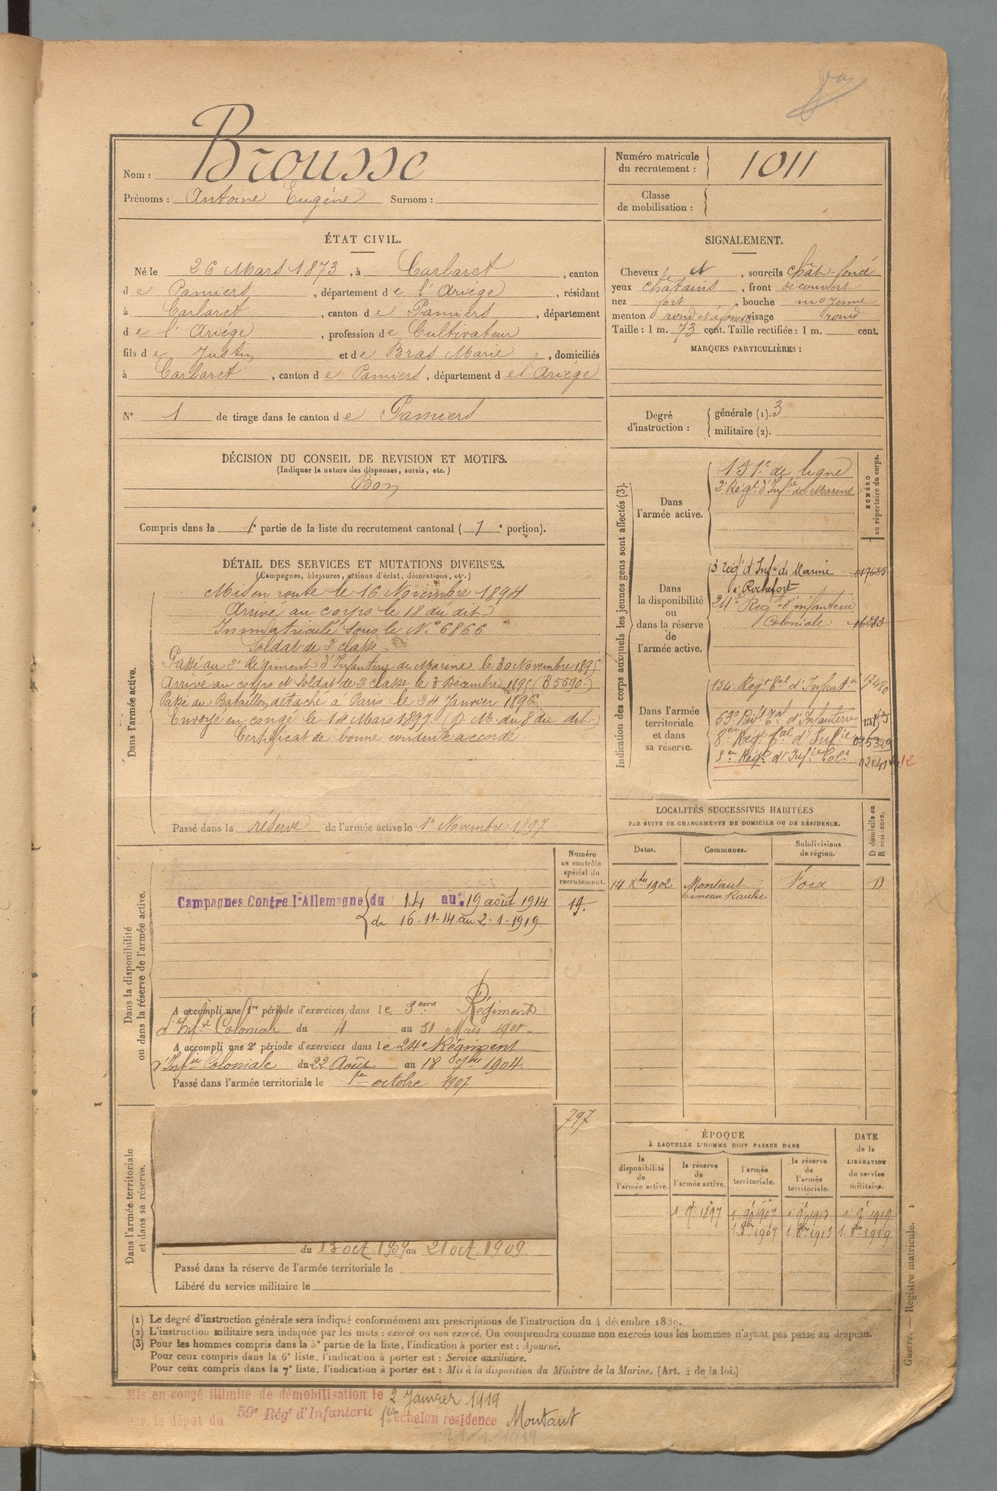 Brousse
Nom :
Prénoms : Antoine Eugène Surnom :
Numéro matricule
du recrutement : 1011
Classe
de mobilisation :
ÉTAT CIVIL.
Né le 26 Mars 1873, à Carlaret, canton
de Pamiers, département de l'Ariège, résidant
à Carlaret, canton de Pamiers, département
de l'Ariège, profession de Cultivateur
fils de Justin et de Bras Marie, domiciliés
à Carlaret, canton de Pamiers, département de l'Ariège
N° 1 de tirage dans le canton de Pamiers
SIGNALEMENT.
Cheveux et, sourcils chât. foncé
yeux chatains, front découvert
nez fort, bouche moyenne
menton rond visage rond
Taille : 1 m. 73 cent. Taille rectifiée : 1 m. cent.
MARQUES PARTICULIÈRES :
Degré
d'instruction :
générale (1). 3
militaire (2).
DÉCISION DU CONSEIL DE REVISION ET MOTIFS.
(Indiquer la nature des dispenses, sursis, etc.)
Bon
Compris dans la 1e partie de la liste du recrutement cantonal (1e portion).
DÉTAIL DES SERVICES ET MUTATIONS DIVERSES.
(Campagnes, blessures, actions d'éclat, décorations, etc.)
Dans l'armée active.
Mis en route le 16 Novembre 1894
Arrivé au corps le 18 du dit
Immatriculé sous le N° 6866
Soldat de 2 classe
Passé au 2e Régiment d'Infanterie de Marine le 30 Novembre 1895
Arrivé au corps et Soldat de 2 classe le 3 Décembre 1895 (85590)
Passé au Bataillon détaché à Paris le 24 Janvier 1896
Envoyé en congé le 14 Mars 1897 (D. M. du 8 du dit)
Certificat de bonne conduite accordé.
Passé dans la réserve de l'armée active le 1er Novembre 1897
Indication des corps auxquels les jeunes gens sont affectés (3).
NUMÉRO
au répertoire du corps.
Dans
l'armée active.
151e de ligne
2 Régt d'Infie de Marine
Dans
la disponibilité
ou
dans la réserve
de
l'armée active.
3 regt d'Infie de Marine
à Rochefort
24e Régt d'infanterie
Coloniale 16283
Dans l'armée
territoriale
et dans
sa réserve.
134e Régt tal d'Infantie
63e Régt tal d'Infanterie
8e Régt tal d'Infie
8e Régt d'Infie Cole
LOCALITÉS SUCCESSIVES HABITÉES
PAR SUITE DE CHANGEMENTS DE DOMICILE OU DE RÉSIDENCE.
D domicile ou
R résidence.
Dates.
Communes.
Subdivisions
de région.
14 Xbre 1902 Montaut Foix D
Dans la disponibilité
ou dans la réserve de l'armée active.
Numéro
au contrôle
spécial du
recrutement.
19.
Campagnes Contre l'Allemagne du 14 au 19 août 1914
du 16-11-14 au 2-1-1919
A accompli une 1re période d'exercices dans le 3eme Régiment
d'Infie Coloniale du 4 au 31 Mars 1901
A accompli une 2e période d'exercices dans le 24e Régiment
d'Infie Coloniale du 22 Août au 18 7bre 1904.
Passé dans l'armée territoriale le 1er octobre 1907
Dans l'armée territoriale
et dans sa réserve.
797
du 13 oct. 1909 au 21 oct. 1909
Passé dans la réserve de l'armée territoriale le
Libéré du service militaire le
ÉPOQUE
À LAQUELLE L'HOMME DOIT PASSER DANS
la
disponibilité
de
l'armée active.
la réserve
de
l'armée active.
l'armée
territoriale.
la réserve
de
l'armée
territoriale.
DATE
de la
LIBÉRATION
du service
militaire.
(1) Le degré d'instruction générale sera indiqué conformément aux prescriptions de l'instruction du 4 décembre 1889.
(2) L'instruction militaire sera indiquée par les mots : exercé ou non exercé. On comprendra comme non exercés tous les hommes n'ayant pas passé au drapeau.
(3) Pour les hommes compris dans la 5e partie de la liste, l'indication à porter est : Ajourné.
Pour ceux compris dans la 6e liste, l'indication à porter est : Service auxiliaire.
Pour ceux compris dans la 7e liste, l'indication à porter est : Mis à la disposition du Ministre de la Marine. (Art. 4 de la loi.)
Guerre. — Registre matricule. 1
Mis en congé illimité de démobilisation le 2 Janvier 1919
par le dépôt du 59e Régt d'Infanterie 1er échelon residence Montaut